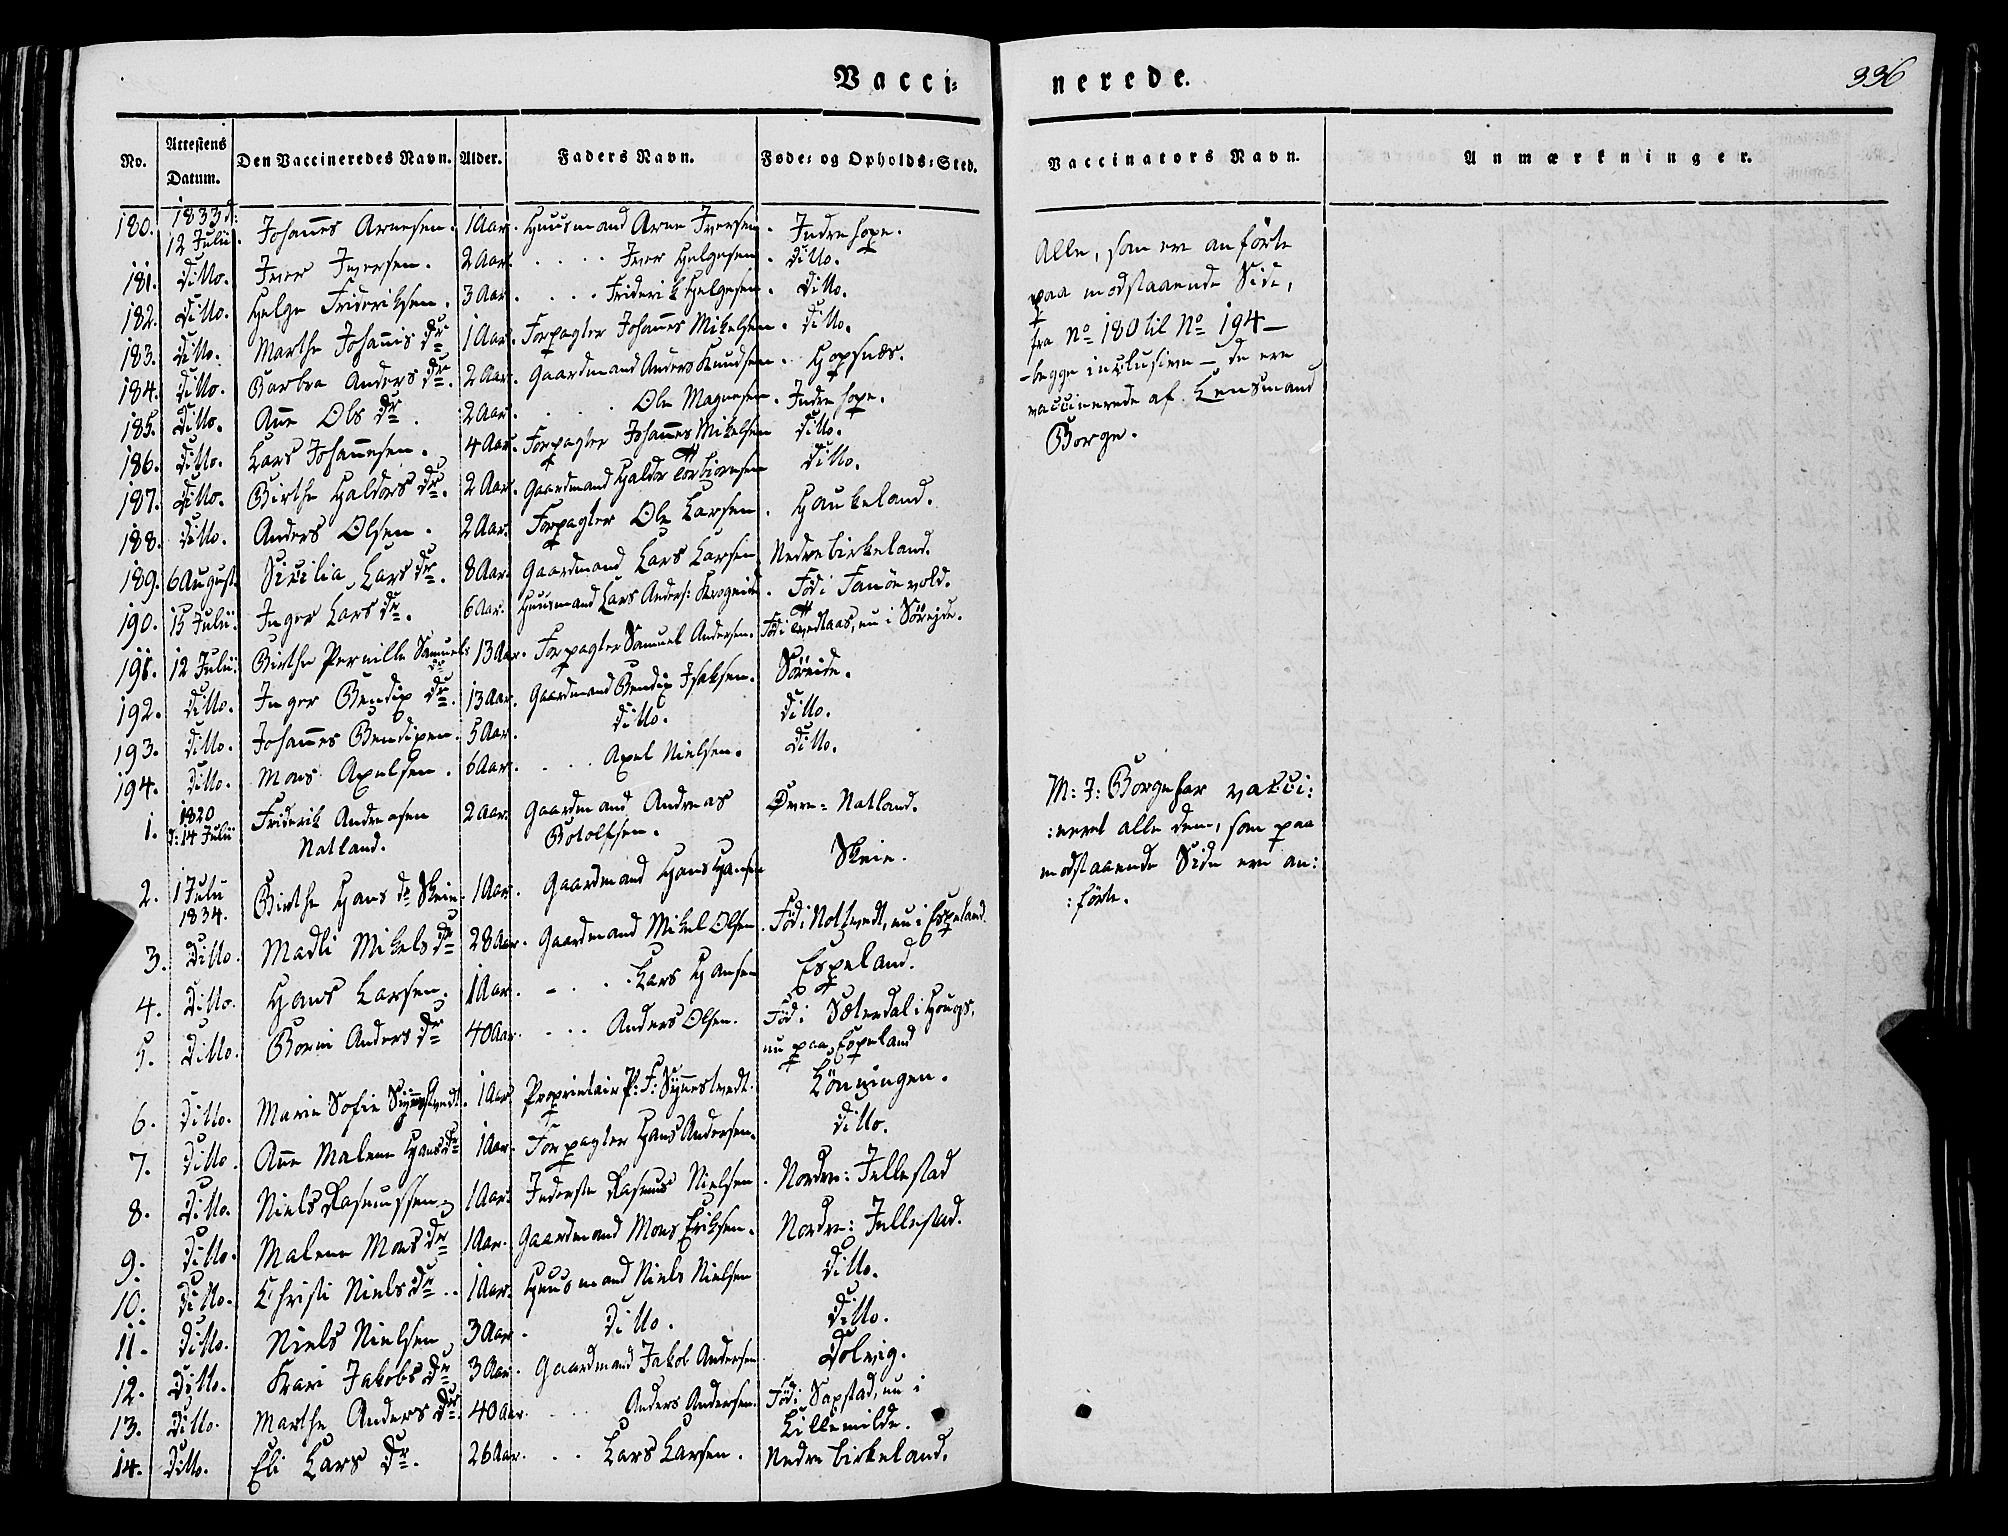 Vacci=
nerede.
336
No.
Attestens Datum.
Den Vaccineredes Navn.
Alder.
Faders Navn.
Føde= og Opholds=Sted.
Vaccinators Navn.
Anmærkninger.
180. 1833 d: 12 Julii. Johannes Arnesen. 1 Aar. Huusmand Arne Iversen. Indre hope.
181. Ditto. Iver Iversen. 2 Aar. . . . . Iver Helgesen. Ditto.
182. Ditto. Helge Friderichsen. 3 Aar. . . . Friderik Helgesen. Ditto.
183. Ditto. Marthe Johannis Dr 1 Aar. Forpagter Johannes Mikelsen. Ditto.
184. Ditto. Barbra Anders Dr. 2 Aar. Gaardmand Anders Knudsen. Hopsnæs.
185. Ditto. Ane Ols Dr. 2 Aar. . . . Ole Magnesen. Indre hope.
186. Ditto. Lars Johannesen. 4 Aar. Forpagter Johannes Mikelsen Ditto.
187. Ditto. Birthe Haldors Dr. 2 Aar. Gaardmand Haldor Torbiørnsen Ditto.
188. Ditto. Anders Olsen. 2 Aar. Forpagter Ole Larsen. Haukeland.
189. 6 August. Sicilia Lars Dr. 8 Aar. Gaardmand Lars Larsen Nedre birkeland.
190. 15 Julii. Inger Lars Dr. 6 Aar. Huusmand Lars Anders: Krogeide. Fød i Fanøevold.
191. 12 Julii. Birthe Pernille Samuels Dr 13 Aar. Forpagter Samuel Andersen. Fød i Tvedtaas, nu i Sørejde.
192. Ditto. Inger Bendix Dr. 13 Aar. Gaardmand Bendix Isaksen. Søreide.
193. Ditto. Johannes Bendixen. 5 Aar. Ditto. Ditto.
194. Ditto. Mons Axelsen. 6 Aar. . . . Axel Nielsen. Ditto.
1. 1820 D: 14 Julii Friderik Andreasen Natland. 2 Aar. Gaardmand Andreas Botolfsen. Øvre= Natland.
2. 1 Julii 1834. Birthe Hans Dr Skeie. 1 Aar. Gaardmand Hans Hansen Skeie.
3. Ditto. Madli Mikels Dr 28 Aar. Gaardmand Mikel Olsen. Fød i Nottvedt, nu i Espeland.
4. Ditto. Hans Larsen. 1 Aar. . . . Lars Hansen Espeland.
5. Ditto. Borni Anders Dr 40 Aar. . . . Anders Olsen. Fød i Sæterdal i Hougs, nu paa Espeland
6. Ditto. Marie Sofie Synnestvedt. 1 Aar. Proprietair P: F: Synnestvedt. Lønningen.
7. Ditto. Ane Malene Hans Dr 1 Aar. Forpagter Hans Andersen. Ditto.
8. Ditto. Niels Rasmussen 1 Aar. Inderste Rasmus Nielsen. Nordre: Jellestad
9. Ditto. Malene Mons Dr 1 Aar. Gaardmand Mons Erichsen. Nordre: Jellestad.
10. Ditto. Christi Niels Dr. 1 Aar. Huusmand Niels Nielsen Ditto.
11. Ditto. Niels Nielsen 3 Aar. Ditto. Ditto.
12. Ditto. Kari Jakobs Dr 3 Aar. Gaardmand Jakob Andersen. Dolvig.
13. Ditto. Marthe Anders Dr. 40 Aar. . . . Anders Andersen. Fød i Sapstad, nu i Lillemilde.
14. Ditto. Eli Lars Dr. 26 Aar. . . Lars Larsen. Nedre birkeland.
Alle, som ere anførte
paa modstaaende Side,
fra No 180 til No 194 –
– begge inclusive – de ere
vaccinerede af Lensmand
Borge.
M: J: Borge har vacci:
:neret alle dem, som paa
modstaaende Side ere an:
:førte.